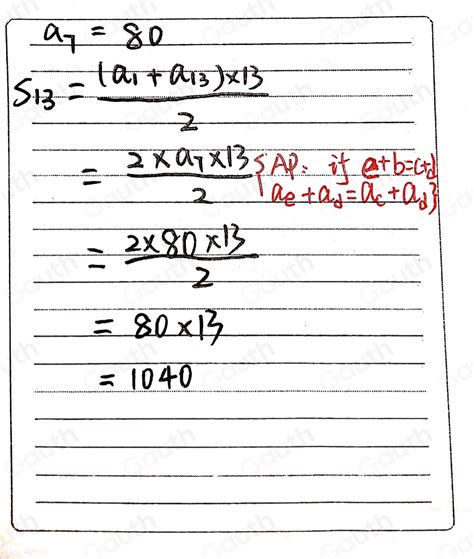 a₇ = 80
S₁₃ = (a₁ + a₁₃) × 13 / 2
= 2 × a₇ × 13 / 2 {AP: if e+b=c+d
aₑ + a_d = a_c + a_d}
= 2 × 80 × 13 / 2
= 80 × 13
= 1040